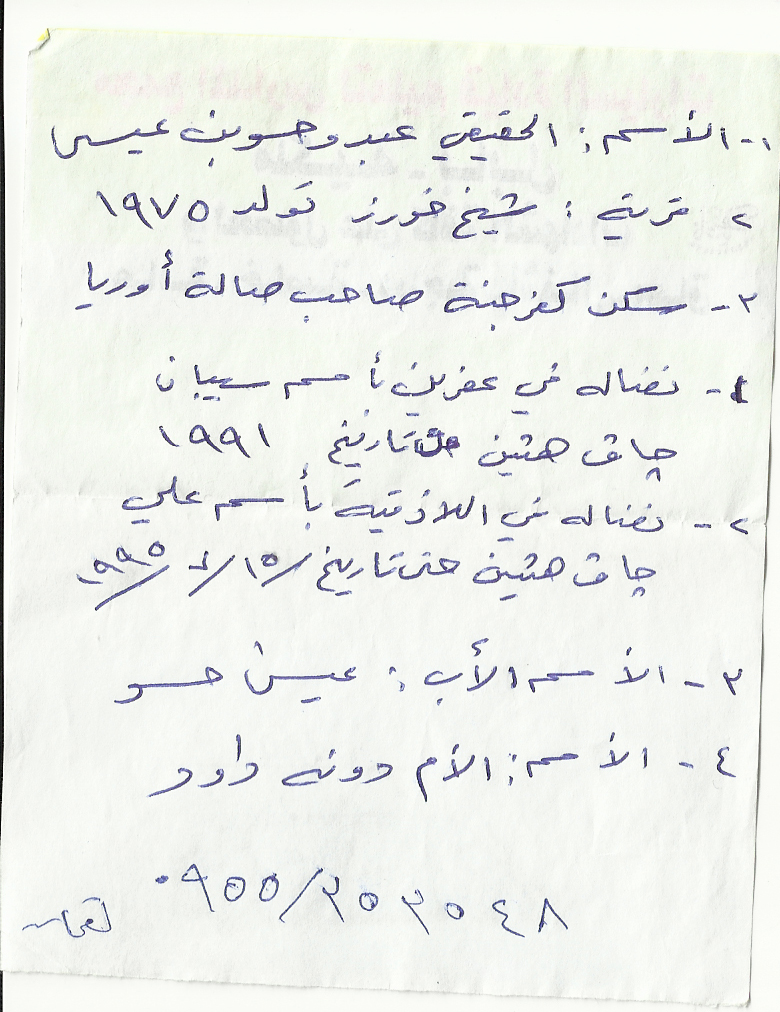 ١- الأسم: الحقيقي عبدو حسو بن عيسى
٢ قرية: شيخ خورز تولد ١٩٧٥
٣- سكن كفرجنة صاحب صالة أوربا
١- نضاله في عفرين بأسم سيبان
چاف هشين تاريخ ١٩٩١
٢- نضاله في اللاذقية بأسم علي
چاف هشين حتى تاريخ ١٥/ /١٩٩٥
٣- الأسم الأب: عيسى حسو
٤- الأسم: الأم دونه داود
٠٩٥٥/٣٥٣٥٤٨
لقمان